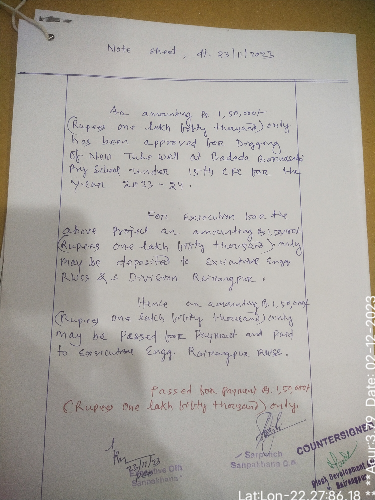 Note Sheet, dt. 23/11/2023
An amounting Rs. 1,50,000/-
(Rupees one lakh fifty thousand) only
has been approved for Digging
of New Tube well at
Pry School under 15th CFC for the
Year 2023-24.
For execution for the
above project an amounting Rs. 1,50,000/-
(Rupees one lakh fifty thousand) only
may be deposited to Executive Engg.
RWSS & S Division Rairangpur.
Hence an amounting Rs. 1,50,000/-
(Rupees one lakh fifty thousand) only
may be Passed for Payment and Paid
to Executive Engg. Rairangpur RWSS.
Passed for payment Rs. 1,50,000/-
(Rupees one lakh fifty thousand) only.
23/11/23
Sarpanch
Sanpakhana G.P.
COUNTERSIGNED
Block Development
Rairangpur
Lat:Lon-22.27:86.18 **Acur:3.79 Date: 02-12-2023